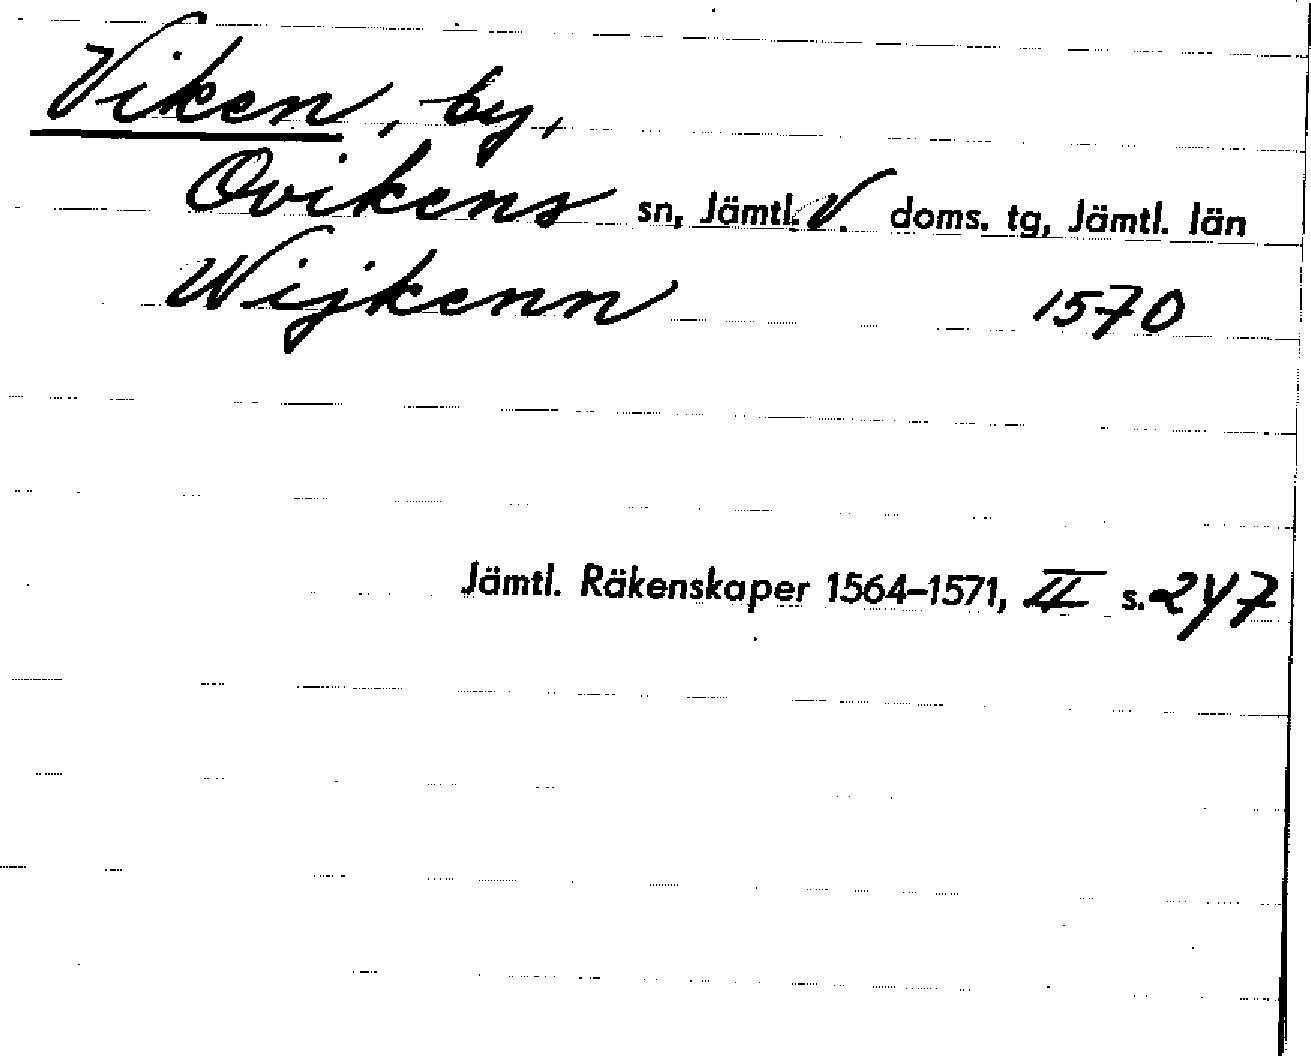 Viken, by,
Ovikens sn, Jämtl. V. doms. tg, Jämtl. län
Wijkenn 1570
Jämtl. Räkenskaper 1564–1571, II s. 247